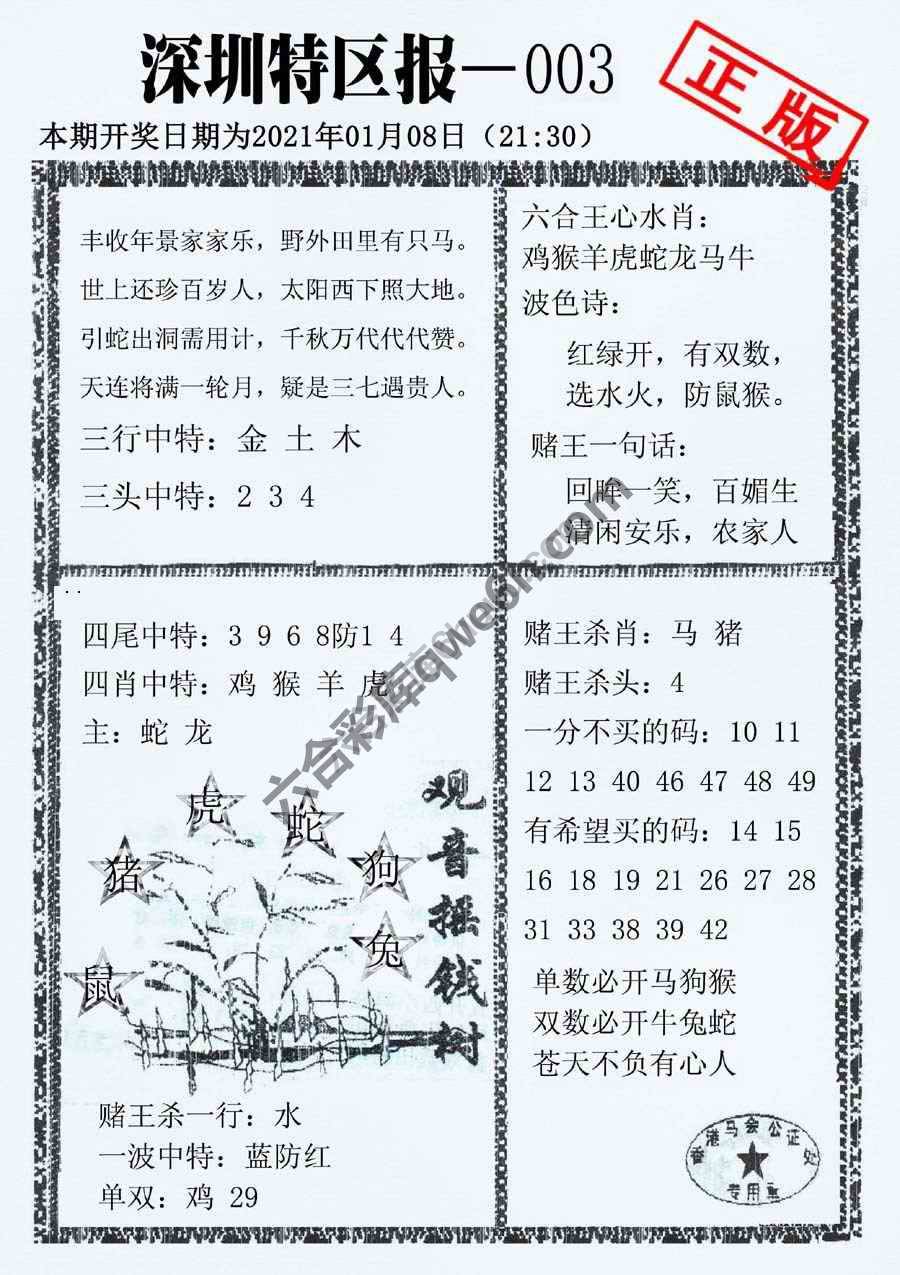 深圳特区报—003
正版
本期开奖日期为2021年01月08日（21:30）
丰收年景家家乐，野外田里有只马。
世上还珍百岁人，太阳西下照大地。
引蛇出洞需用计，千秋万代代代赞。
天连将满一轮月，疑是三七遇贵人。
三行中特：金 土 木
三头中特：2 3 4
六合王心水肖：
鸡猴羊虎蛇龙马牛
波色诗：
红绿开，有双数，
选水火，防鼠猴。
赌王一句话：
回眸一笑，百媚生
清闲安乐，农家人
四尾中特：3 9 6 8防1 4
四肖中特：鸡 猴 羊 虎
主：蛇 龙
虎
蛇
猪
狗
兔
鼠
观音摇钱树
赌王杀一行：水
一波中特：蓝防红
单双：鸡 29
赌王杀肖：马 猪
赌王杀头：4
一分不买的码：10 11
12 13 40 46 47 48 49
有希望买的码：14 15
16 18 19 21 26 27 28
31 33 38 39 42
单数必开马狗猴
双数必开牛兔蛇
苍天不负有心人
香港马会公证处
专用章
六合彩库qwe6h.com